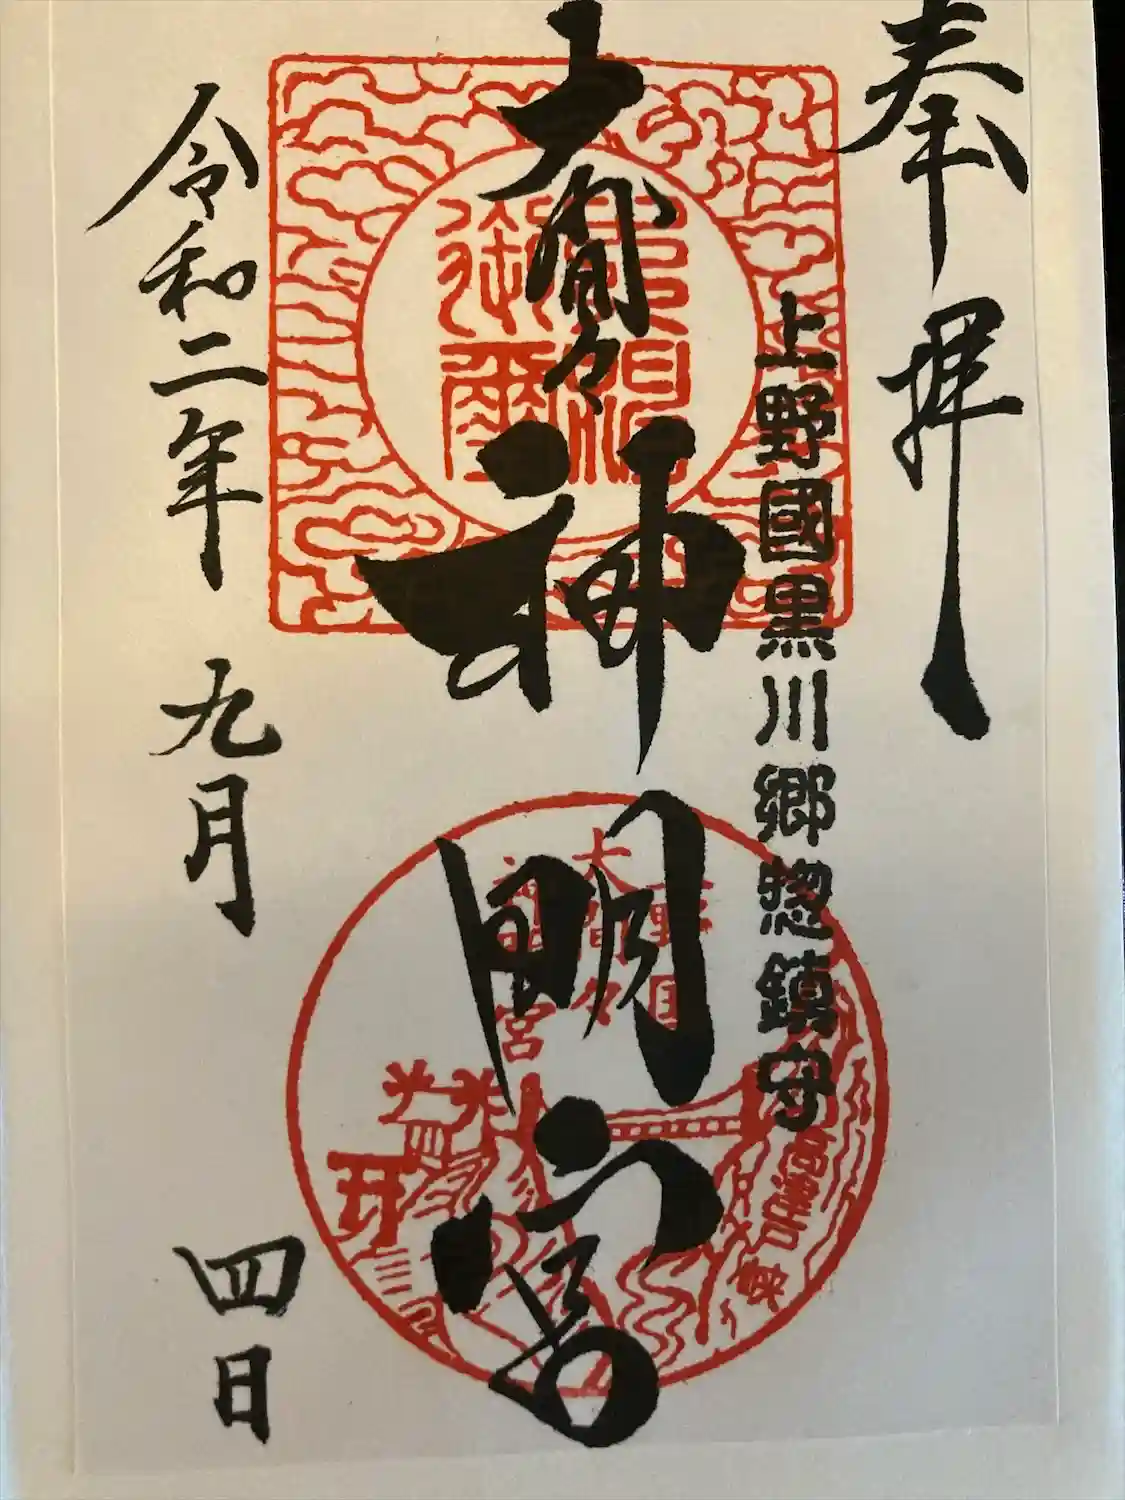 奉拝
上野國黒川郷惣鎮守
大間々神明宮
令和二年九月四日
上野国
大間々
神明宮
高津戸峡